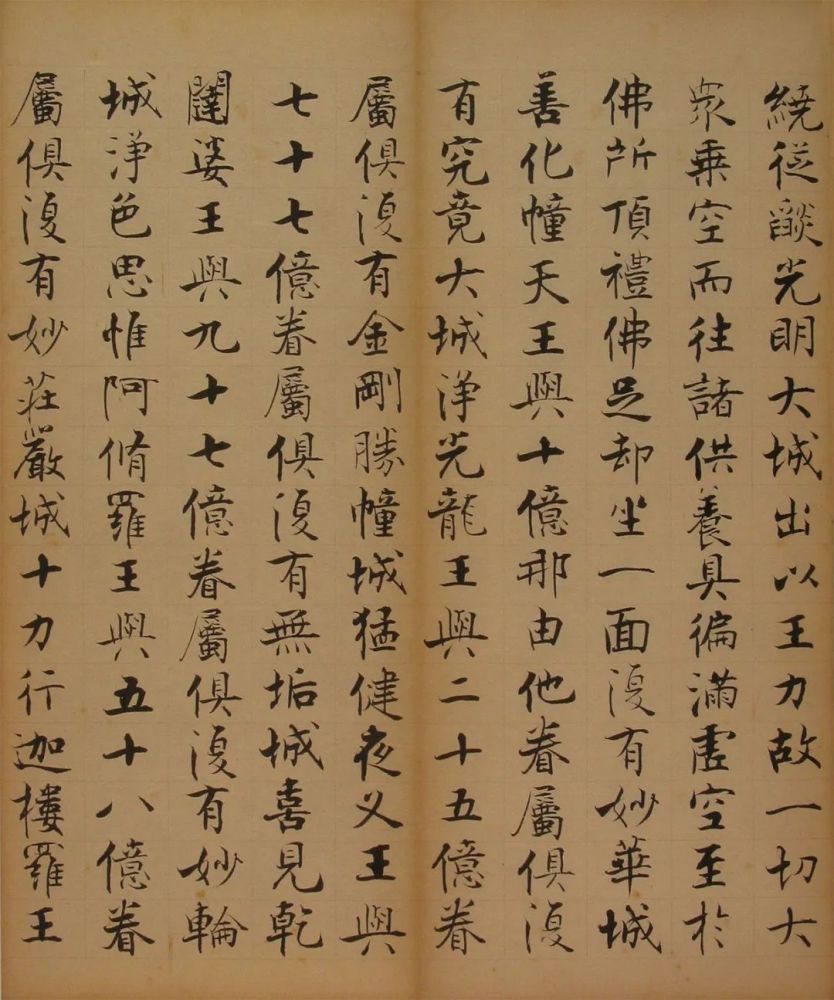 繞從燄光明大城出以王力故一切大
眾乘空而往諸供養具徧滿虛空至於
佛所頂禮佛足却坐一面復有妙華城
善化幢天王與十億那由他眷屬俱復
有究竟大城淨光龍王與二十五億眷
屬俱復有金剛勝幢城猛健夜叉王與
七十七億眷屬俱復有無垢城喜見乾
闥婆王與九十七億眷屬俱復有妙輪
城淨色思惟阿脩羅王與五十八億眷
屬俱復有妙莊嚴城十力行迦樓羅王